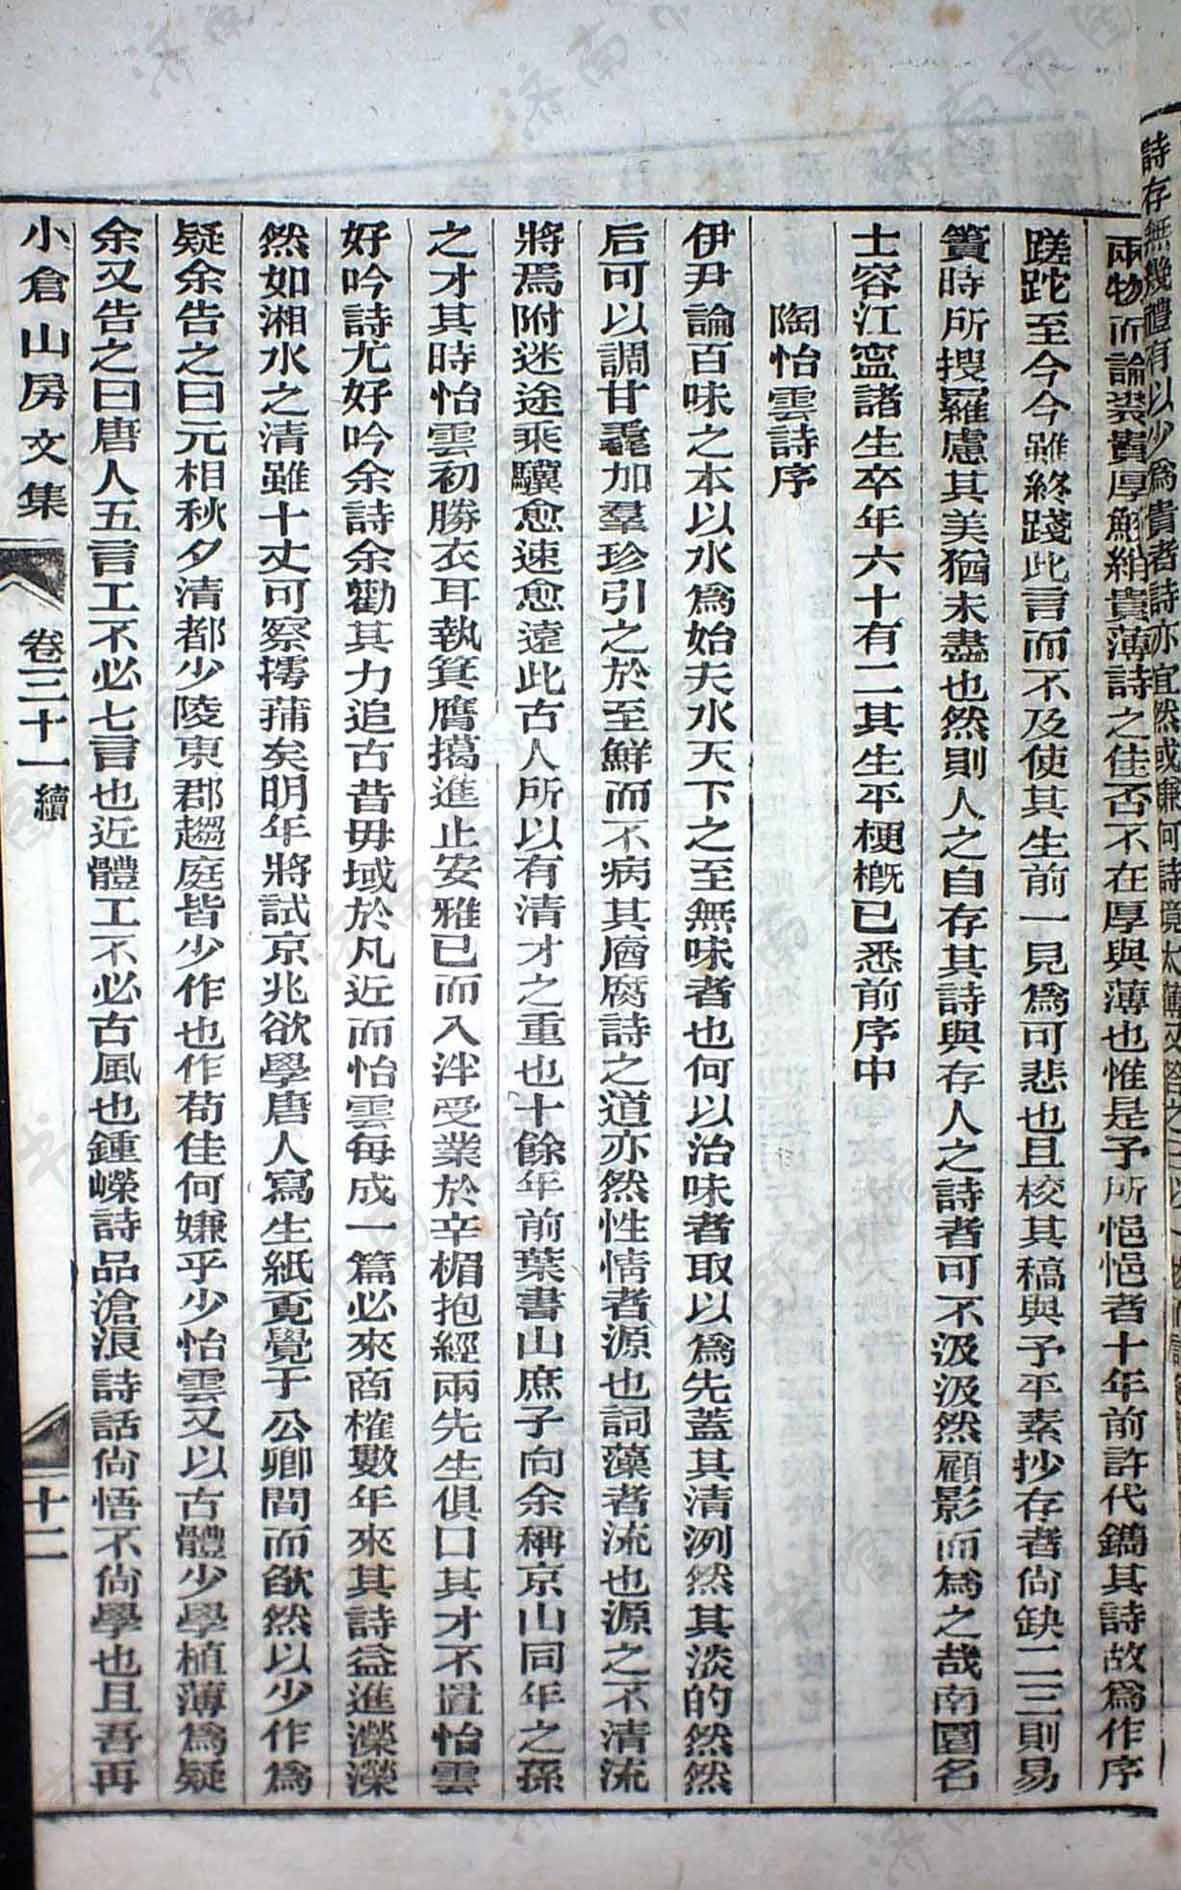 詩存無幾禮有以少爲貴者詩亦宜然或嫌何詩境太薄又答之
兩物而論裘貴厚鮫綃貴薄詩之佳否不在厚與薄也惟是予所悒悒者十年前許代鐫其詩故爲作序
蹉跎至今今雖終踐此言而不及使其生前一見爲可悲也且校其稿與予平素抄存者尙缺二三則易
簀時所搜羅慮其美猶未盡也然則人之自存其詩與存人之詩者可不汲汲然顧影而爲之哉南園名
士容江寍諸生卒年六十有二其生平梗概已悉前序中
陶怡雲詩序
伊尹論百味之本以水爲始夫水天下之至無味者也何以治味者取以爲先蓋其清洌然其淡的然然
后可以調甘毳加羣珍引之於至鮮而不病其腐詩之道亦然性情者源也詞藻者流也源之不清流
將焉附迷途乘驥愈速愈遠此古人所以有清才之重也十餘年前葉書山庶子向余稱京山同年之孫
之才其時怡雲初勝衣耳執箕膺擖進止安雅已而入泮受業於辛楣抱經兩先生俱口其才不置怡雲
好吟詩尤好吟余詩余勸其力追古昔毋域於凡近而怡雲每成一篇必來商榷數年來其詩益進濼濼
然如湘水之清雖十丈可察摴蒱矣明年將試京兆欲學唐人寫生紙覓覺于公卿間而欿然以少作爲
疑余告之曰元相秋夕清都少陵東郡趨庭皆少作也作苟佳何嫌乎少怡雲又以古體少學植薄爲疑
余又告之曰唐人五言工不必七言也近體工不必古風也鍾嶸詩品滄浪詩話尙悟不尙學也且吾再
小倉山房文集 卷三十一 續 十二